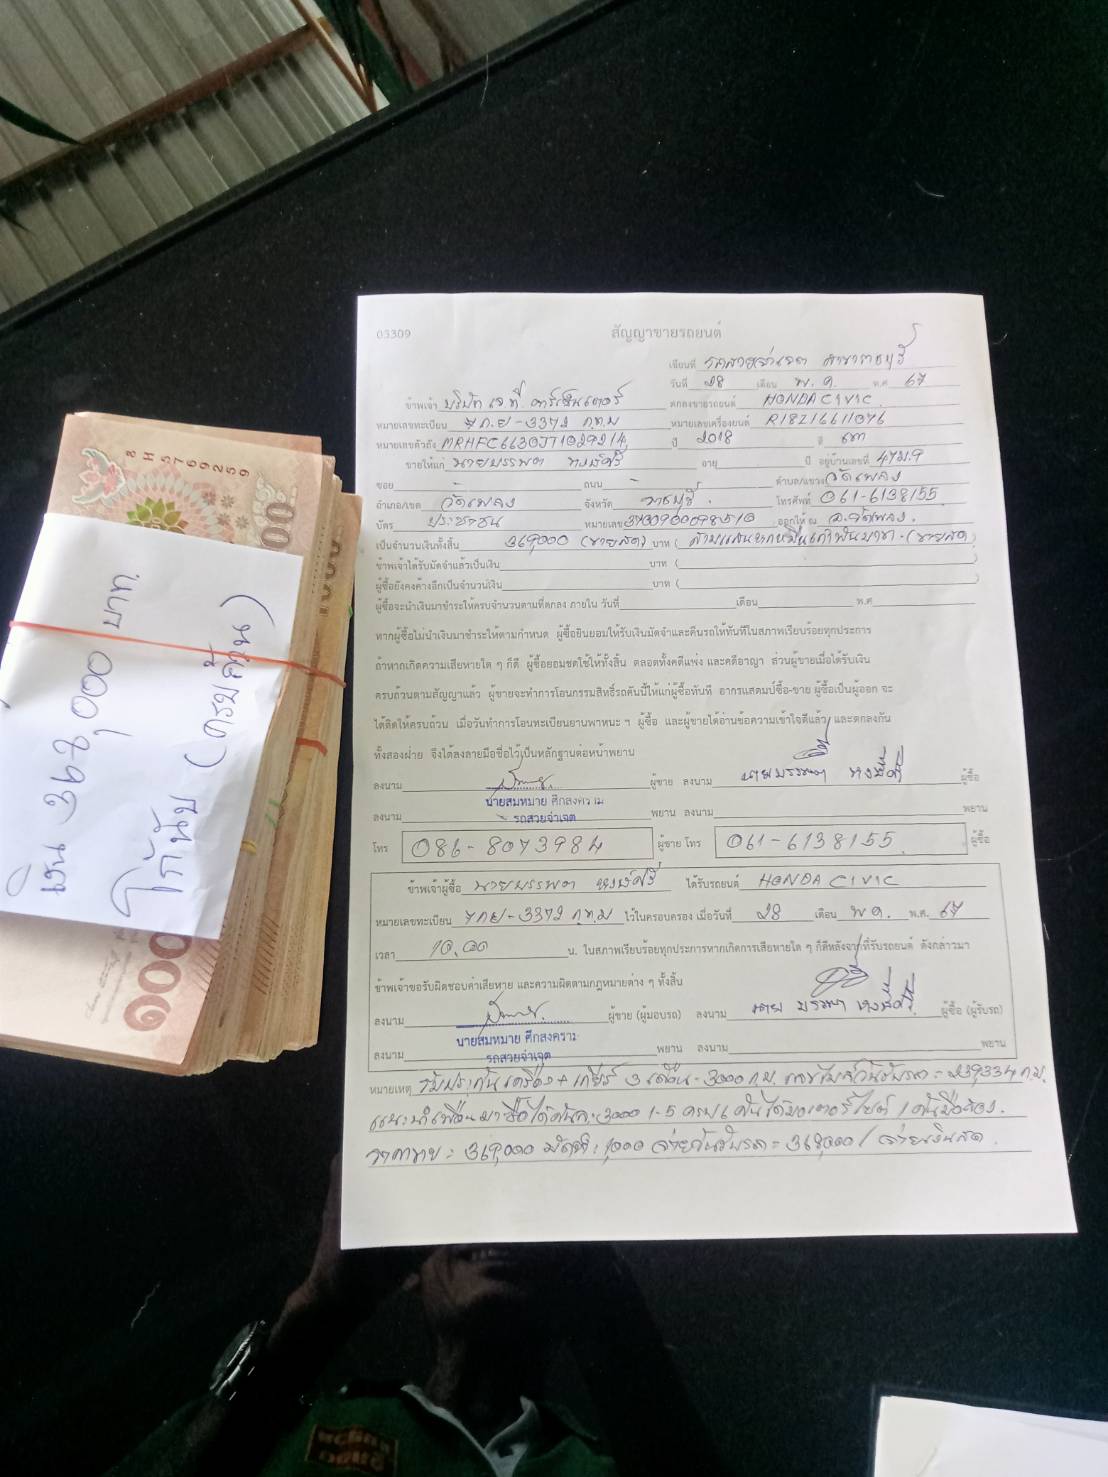 03309
สัญญาขายรถยนต์
เขียนที่ รถสวยจำเจต สาขาราชบุรี
วันที่ 28 เดือน พ.ค. พ.ศ 67
ข้าพเจ้า บริษัท เจ.ที. คาร์เซ็นเตอร์ ตกลงขายรถยนต์ HONDA CIVIC
หมายเลขทะเบียน 7กย-3372 ก.ท.ม หมายเลขเครื่องยนต์ R18Z16611076
หมายเลขตัวถัง MRHFC6630JT1029214 ปี 2018 สี เทา
ขายให้แก่ นายบรรพต อายุ ปี อยู่บ้านเลขที่ 47 ม.9
ซอย - ถนน - ตำบล/แขวง วัดเพลง
อำเภอ/เขต วัดเพลง จังหวัด ราชบุรี. โทรศัพท์ 061-6138155
บัตร ประชาชน หมายเลข ออกให้ ณ อ.วัดเพลง.
เป็นจำนวนเงินทั้งสิ้น 369,000 (ขายสด) บาท ( สามแสนหกหมื่นเก้าพันบาท. (ขายสด)
ข้าพเจ้าได้รับมัดจำแล้วเป็นเงิน บาท ( )
ผู้ซื้อยังคงค้างอีกเป็นจำนวนเงิน บาท ( )
ผู้ซื้อจะนำเงินมาชำระให้ครบจำนวนตามที่ตกลง ภายใน วันที่ เดือน พ.ศ
หากผู้ซื้อไม่นำเงินมาชำระให้ตามกำหนด ผู้ซื้อยินยอมให้รับเงินมัดจำและคืนรถให้ทันทีในสภาพเรียบร้อยทุกประการ
ถ้าหากเกิดความเสียหายใด ๆ ก็ดี ผู้ซื้อยอมชดใช้ให้ทั้งสิ้น ตลอดทั้งคดีแพ่ง และคดีอาญา ส่วนผู้ขายเมื่อได้รับเงิน
ครบถ้วนตามสัญญาแล้ว ผู้ขายจะทำการโอนกรรมสิทธิ์รถคันนี้ให้แก่ผู้ซื้อทันที อากรแสตมป์ซื้อ-ขาย ผู้ซื้อเป็นผู้ออก จะ
ได้ติดให้ครบถ้วน เมื่อวันทำการโอนทะเบียนยานพาหนะ ฯ ผู้ซื้อ และผู้ขายได้อ่านข้อความเข้าใจดีแล้ว และตกลงกัน
ทั้งสองฝ่าย จึงได้ลงลายมือชื่อไว้เป็นหลักฐานต่อหน้าพยาน
ลงนาม ผู้ขาย ลงนาม นายบรรพต ผู้ซื้อ
นายสมหมาย ศึกสงคราม
ลงนาม รถสวยจำเจต พยาน ลงนาม พยาน
โทร 086-8073984 ผู้ขาย โทร 061-6138155 ผู้ซื้อ
ข้าพเจ้าผู้ซื้อ นายบรรพต ได้รับรถยนต์ HONDA CIVIC
หมายเลขทะเบียน 7กย-3372 ก.ท.ม ไว้ในครอบครอง เมื่อวันที่ 28 เดือน พ.ค. พ.ศ. 67
เวลา 10.00 น. ในสภาพเรียบร้อยทุกประการหากเกิดการเสียหายใด ๆ ก็ดีหลังจากที่รับรถยนต์ ดังกล่าวมา
ข้าพเจ้าขอรับผิดชอบค่าเสียหาย และความผิดตามกฎหมายต่าง ๆ ทั้งสิ้น
ลงนาม ผู้ขาย (ผู้มอบรถ) ลงนาม นาย บรรพต ผู้ซื้อ (ผู้รับรถ)
นายสมหมาย ศึกสงคราม
ลงนาม รถสวยจำเจต พยาน ลงนาม พยาน
หมายเหตุ รับประกันเครื่อง + เกียร์ 3 เดือน - 3000 ก.ม. เลขไมล์วันรับรถ = 239,334 ก.ม.
แนะนำเพื่อนมาซื้อได้คันละ 3000 1-5 ครบ 6 คันได้มอเตอร์ไซด์ 1 คันมือสอง.
ราคาขาย = 369,000 มัดจำ = 1,000 จ่ายวันรับรถ = 368,000 / จ่ายเงินสด.
เงิน 368,000 บาท.
โก้นับ (ครบถ้วน)
8H5769259
๑๐๐๐